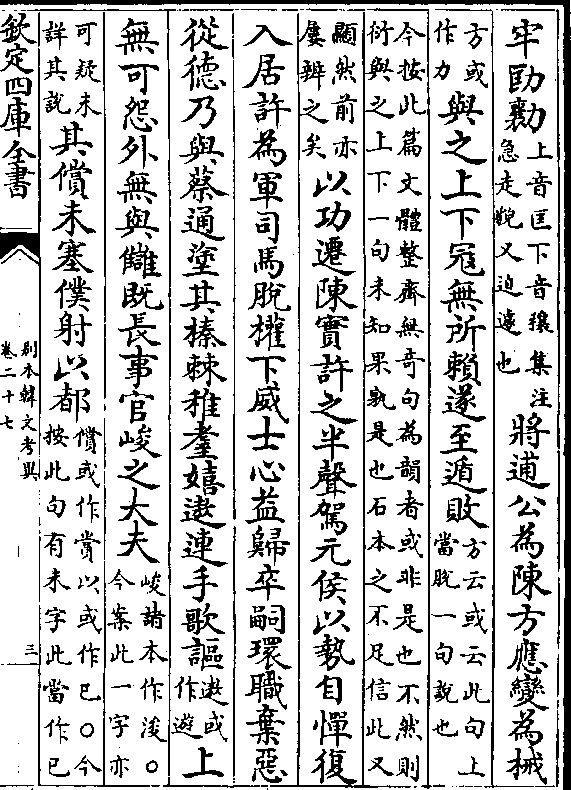 牢劻勷上音匡下音穰集注急走貌又迫遽也將逋公為陳方應變為械
方或作力與之上下寃無所賴遂至遁敗方云或云此句上當脫一句說也
今按此篇文體整齊無奇句為韻者或非是也不然則衍與之上下一句未知果孰是也石本之不足信此又
顯然前亦屢辨之矣以功遷陳實許之半聲駕元侯以勢自憚復
入居許為軍司馬脫權下威士心益歸卒嗣環職棄惡
從德乃與蔡通塗其榛棘稚耋嬉遨連手歌謳遨或作遊上
無可怨外無與讎既長事官峻之大夫峻諸本作浚〇今案此一字亦
可疑未詳其說其償未塞僕射以都償或作賞以或作已〇今按此句有未字此當作已
欽定四庫全書
別本韓文考異
卷二十七
三